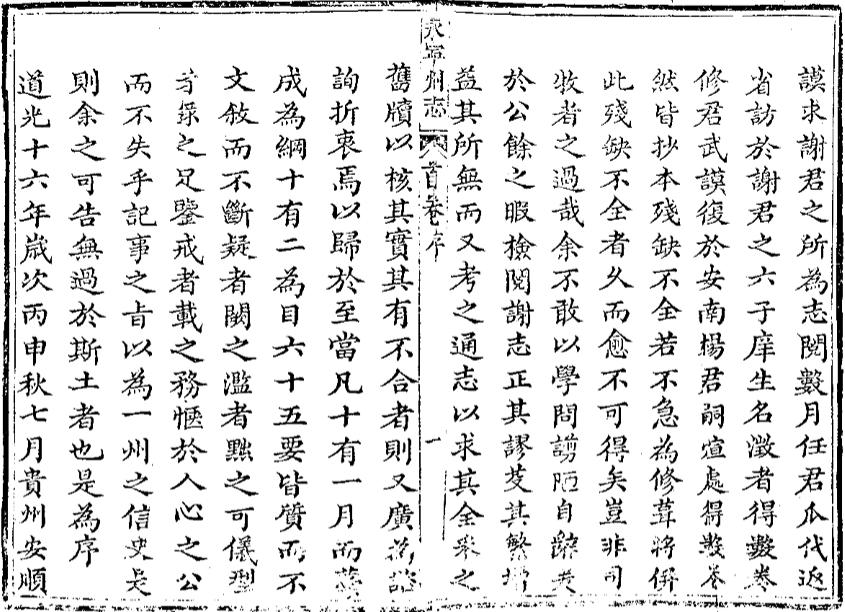 謨求謝君之所為志閱數月任君瓜代返
省訪於謝君之六子庠生名澂者得數卷
修君武謨復於安南楊君嗣煊處得數卷
然皆抄本殘缺不全若不急為修葺將併
此殘缺不全者久而愈不可得矣豈非司
牧者之過哉余不敢以學問譾陋自辭爰
於公餘之暇檢閱謝志正其謬芟其繁增
益其所無而又考之通志以求其全釆之
永寧州志 首卷序 一
舊牘以核其實其有不合者則又廣為諮
詢折衷焉以歸於至當凡十有一月而
成為綱十有二為目六十五要皆質而不
文敘而不斷疑者闕之濫者黜之可儀型
者錄之足鑒戒者載之務愜於人心之公
而不失乎記事之旨以為一州之信史是
則余之可告無過於斯土者也是為序
道光十六年歲次丙申秋七月貴州安順